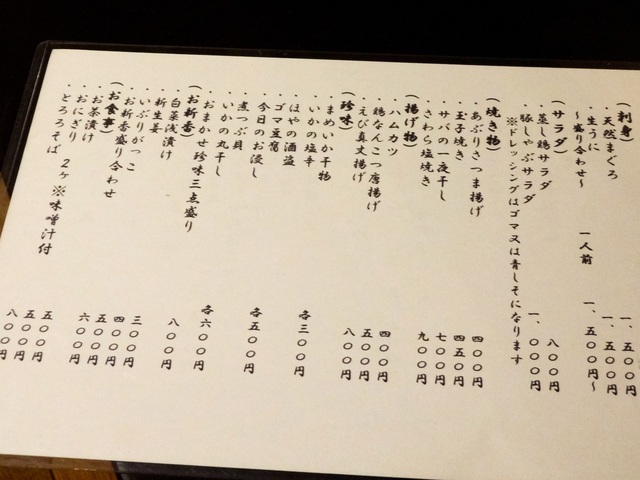 （刺身）
・天然まぐろ 一、五〇〇円
・生うに 一、五〇〇円
〜盛り合わせ〜 一人前 一、五〇〇円〜
（サラダ）
・蒸し鶏サラダ 八〇〇円
・豚しゃぶサラダ 一、〇〇〇円
※ドレッシングはゴマ又は青しそになります
（焼き物）
・あぶりさつま揚げ 四〇〇円
・玉子焼き 四五〇円
・サバの一夜干し 七〇〇円
・さわら塩焼き 九〇〇円
（揚げ物）
・ハムカツ 四〇〇円
・鶏なんこつ唐揚げ 五〇〇円
・えび真丈揚げ 八〇〇円
（珍味）
・まめいか干物
・いかの塩辛 各三〇〇円
・ほやの酒盗
・ゴマ豆腐
・今日のお浸し 各五〇〇円
・煮つぶ貝
・いかの丸干し 各六〇〇円
・おまかせ珍味三点盛り 八〇〇円
（お新香）
・白菜浅漬け
・新生姜 三〇〇円
・いぶりがっこ 四〇〇円
・お新香盛り合わせ 五〇〇円
（お食事） 六〇〇円
・お茶漬け
・おにぎり 2ヶ ※味噌汁付 五〇〇円
・とろろそば 五〇〇円
八〇〇円